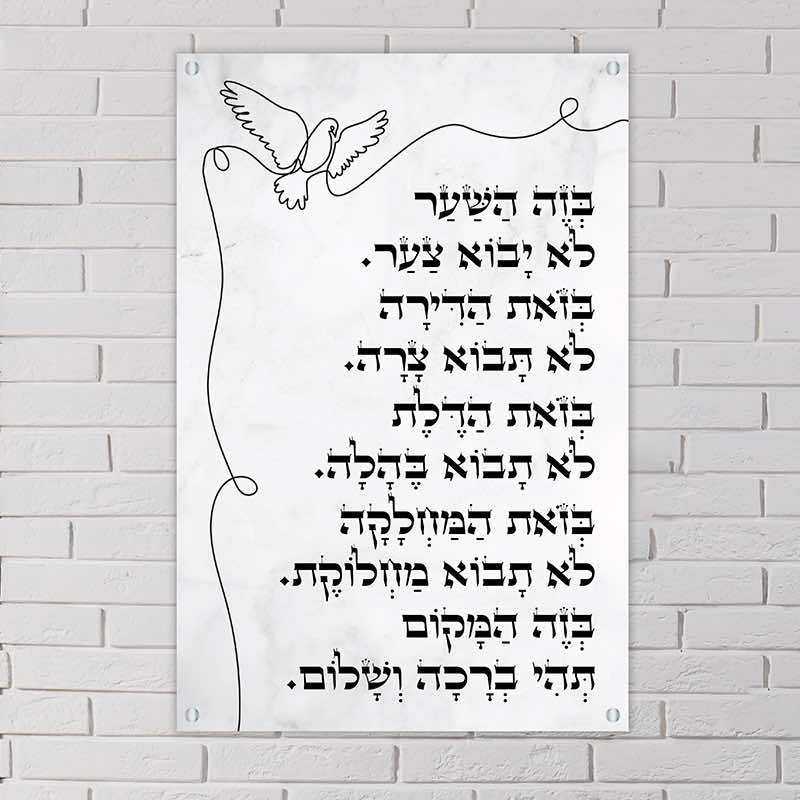 בְּזֶה הַשַּׁעַר
לֹא יָבוֹא צַעַר.
בְּזֹאת הַדִּירָה
לֹא תָּבוֹא צָרָה.
בְּזֹאת הַדֶּלֶת
לֹא תָבוֹא בֶּהָלָה.
בְּזֹאת הַמַּחְלָקָה
לֹא תָבוֹא מַחְלוֹקֶת.
בְּזֶה הַמָּקוֹם
תְּהִי בְּרָכָה וְשָׁלוֹם.